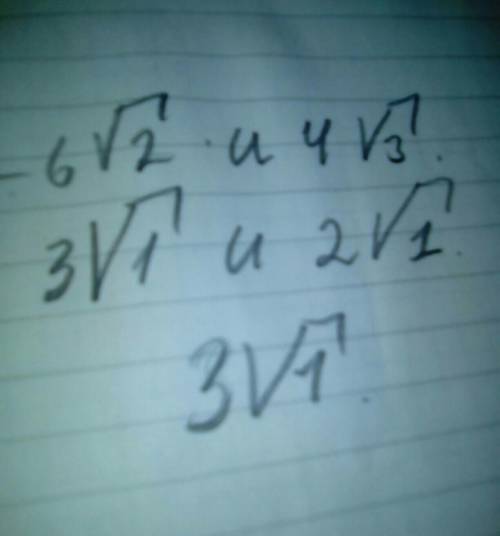 -6√2 и 4√3.
3√1 и 2√1.
3√1.